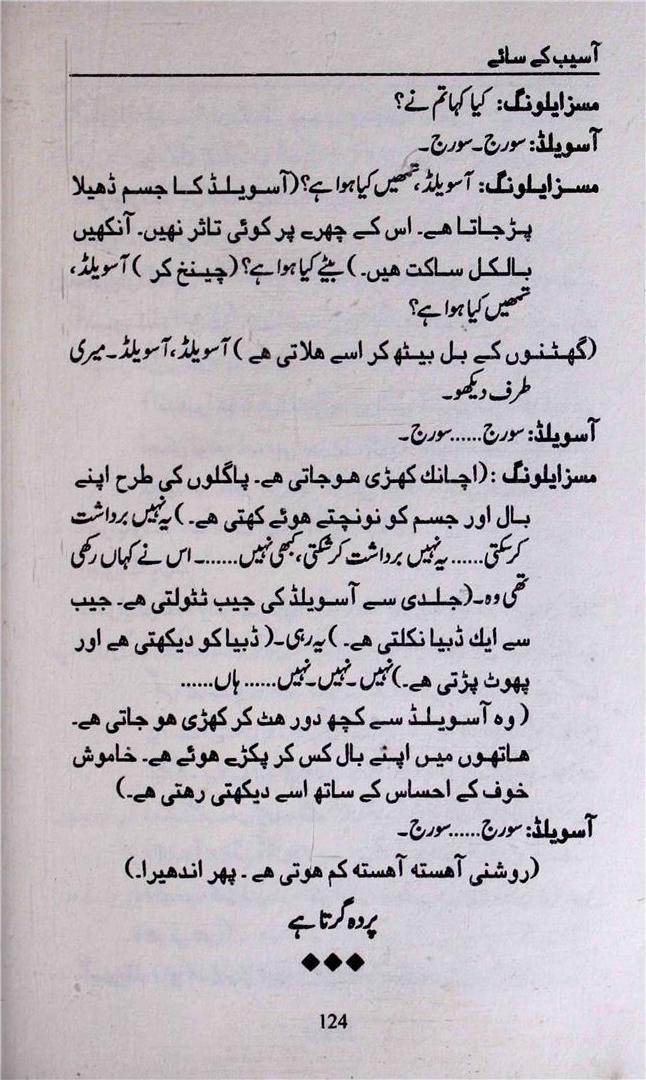 آسیب کے سائے
مسز ایلونگ: کیا کہا تم نے؟
آسویلڈ: سورج۔ سورج۔
مسز ایلونگ: آسویلڈ، تمھیں کیا ہوا ہے؟ (آسویلڈ کا جسم ڈھیلا
پڑ جاتا ھے۔ اس کے چھرے پر کوئی تاثر نھیں۔ آنکھیں
بالکل ساکت ھیں۔) بیٹے کیا ہوا ہے؟ (چینخ کر) آسویلڈ،
تمھیں کیا ہوا ہے؟
(گھٹنوں کے بل بیٹھ کر اسے ھلاتی ھے) آسویلڈ، آسویلڈ۔ میری
طرف دیکھو۔
آسویلڈ: سورج...... سورج۔
مسز ایلونگ: (اچانك کھڑی ھوجاتی ھے۔ پاگلوں کی طرح اپنے
بال اور جسم کو نونچتے ھوئے کھتی ھے۔) یہ نہیں برداشت
کرسکتی...... یہ نہیں برداشت کرسکتی، کبھی نہیں......۔ اس نے کہاں رکھی
تھی وہ۔ (جلدی سے آسویلڈ کی جیب ٹٹولتی ھے۔ جیب
سے ایك ڈبیا نکلتی ھے۔) یہ رہی۔ (ڈبیا کو دیکھتی ھے اور
پھوٹ پڑتی ھے۔) نہیں۔ نہیں۔ نہیں...... ہاں......
(وہ آسویلڈ سے کچھ دور ھٹ کر کھڑی ھو جاتی ھے۔
ھاتھوں میں اپنے بال کس کر پکڑے ھوئے ھے۔ خاموش
خوف کے احساس کے ساتھ اسے دیکھتی رھتی ھے۔)
آسویلڈ: سورج...... سورج۔
(روشنی آھستہ آھستہ کم ھوتی ھے۔ پھر اندھیرا۔)
پردہ گرتا ہے
◆◆◆
124